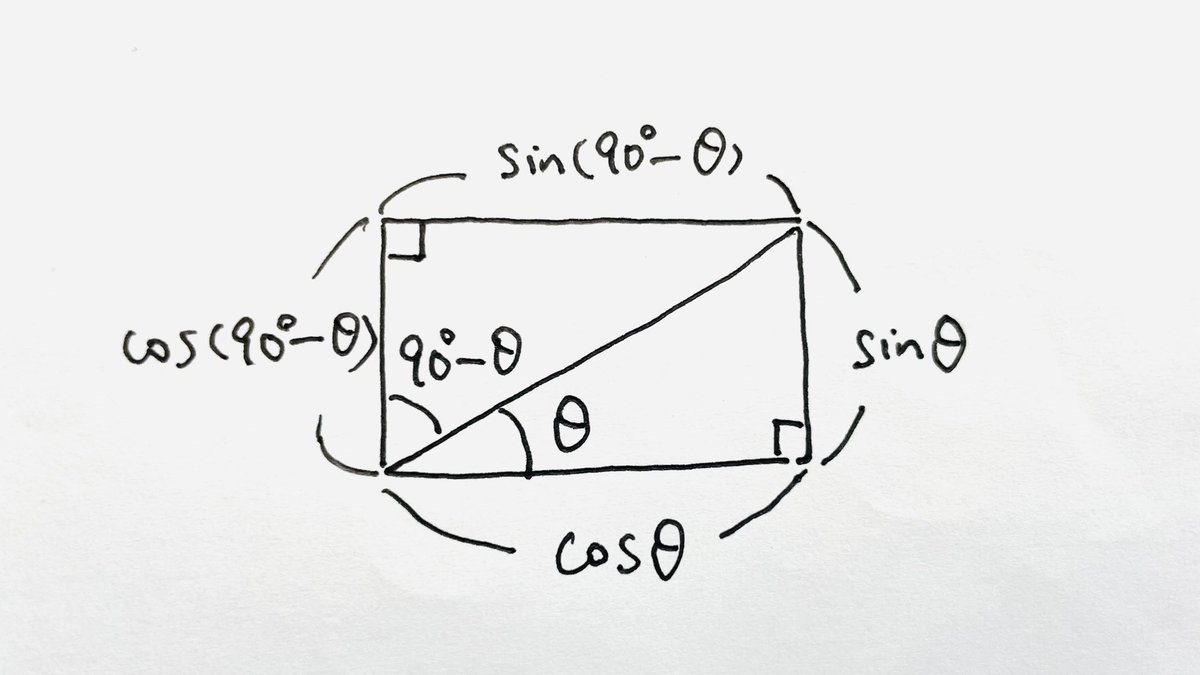 sin(90°-θ)
cos(90°-θ)
90°-θ
sinθ
θ
cosθ